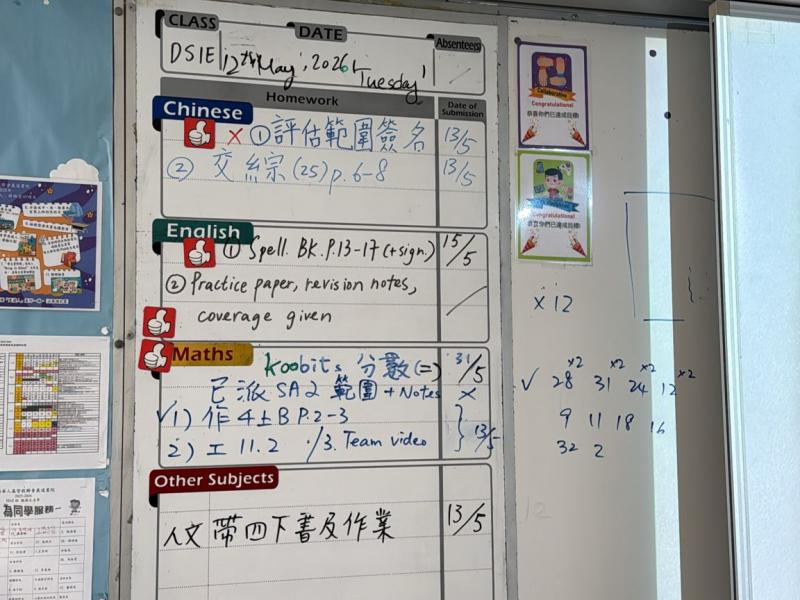 CLASS
DATE
Absentee(s)
12th May, 2026, Tuesday
Homework
Date of Submission
Chinese
① 評估範圍簽名 13/5
② 交綜(25) p.6-8 13/5
English
① Spell. BK. P.13-17 (+sign.) 15/5
② Practice paper, revision notes,
coverage given
Maths
Koobits 分數(二) 31/5
已派 SA2 範圍 + Notes ×
✓1) 作4上B P.2-3
2) 工 11.2 /3. Team video 13/5
Other Subjects
人文帶四下書及作業 13/5
Collaborative
Congratulations!
恭喜你們已達成目標!
Congratulations!
恭喜你們已達成目標!
×12
✓ 28 ×2 31 ×2 24 ×2 12 ×2
9 11 18 16
32 2
12
為同學服務